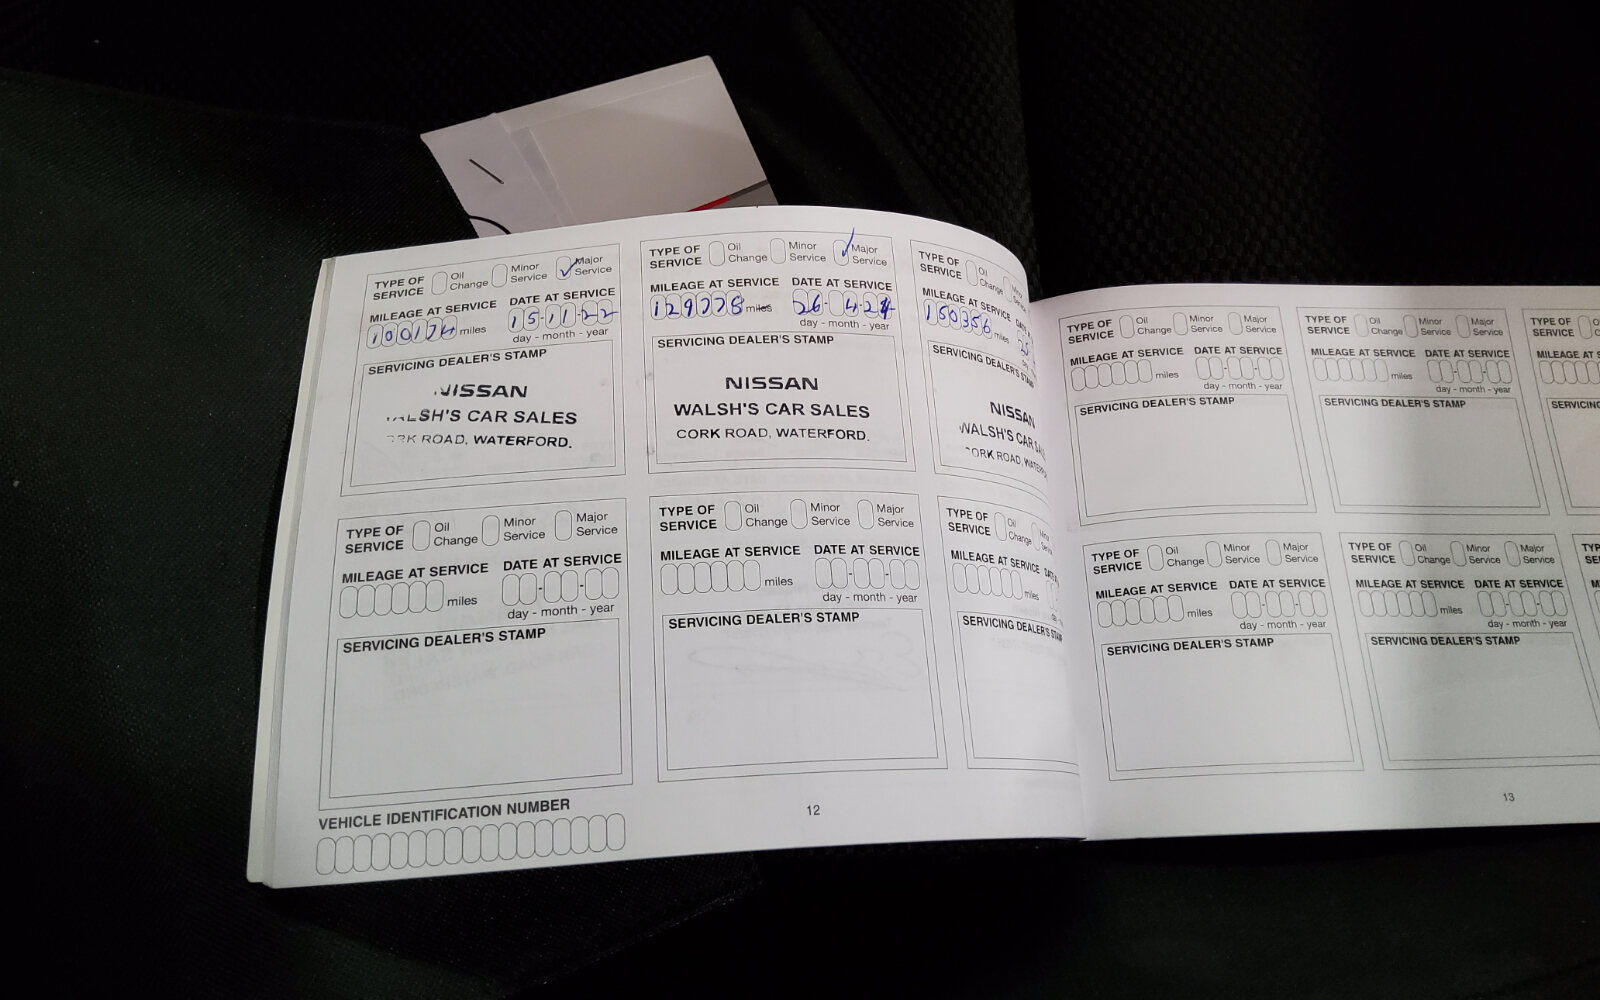 TYPE OF SERVICE Oil Change Minor Service Major Service
MILEAGE AT SERVICE DATE AT SERVICE
100174 miles 15-11-22
day - month - year
SERVICING DEALER'S STAMP
NISSAN
WALSH'S CAR SALES
CORK ROAD, WATERFORD.
TYPE OF SERVICE Oil Change Minor Service Major Service
MILEAGE AT SERVICE DATE AT SERVICE
129778 miles 26-4-24
day - month - year
SERVICING DEALER'S STAMP
NISSAN
WALSH'S CAR SALES
CORK ROAD, WATERFORD.
TYPE OF SERVICE Oil Change
MILEAGE AT SERVICE
150356 miles
SERVICING DEALER'S STAMP
NISSAN
WALSH'S CAR
CORK ROAD,
TYPE OF SERVICE Oil Change Minor Service Major Service
MILEAGE AT SERVICE DATE AT SERVICE
miles
day - month - year
SERVICING DEALER'S STAMP
TYPE OF SERVICE Oil Change Minor Service Major Service
MILEAGE AT SERVICE DATE AT SERVICE
miles
day - month - year
SERVICING DEALER'S STAMP
TYPE OF SERVICE Oil Change
MILEAGE AT SERVICE
miles
SERVICING DEALER'S STAMP
VEHICLE IDENTIFICATION NUMBER
12
TYPE OF SERVICE Oil Change Minor Service Major Service
MILEAGE AT SERVICE DATE AT SERVICE
miles
day - month - year
SERVICING DEALER'S STAMP
TYPE OF SERVICE Oil Change Minor Service Major Service
MILEAGE AT SERVICE DATE AT SERVICE
miles
day - month - year
SERVICING DEALER'S STAMP
TYPE OF SERVICE
MILEAGE AT
TYPE OF SERVICE Oil Change Minor Service Major Service
MILEAGE AT SERVICE DATE AT SERVICE
miles
day - month - year
SERVICING DEALER'S STAMP
TYPE OF SERVICE Oil Change Minor Service Major Service
MILEAGE AT SERVICE DATE AT SERVICE
miles
day - month - year
SERVICING DEALER'S STAMP
13